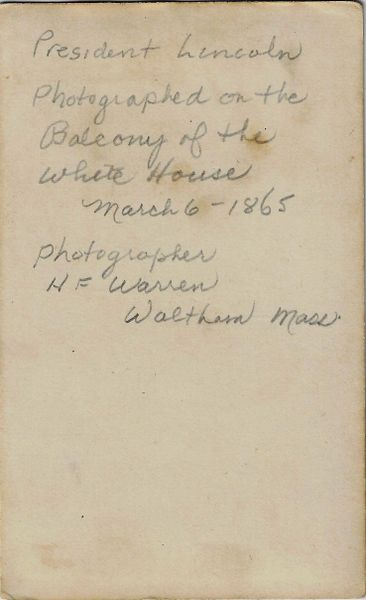 President Lincoln
Photographed on the
Balcony of the
White House
March 6 - 1865
Photographer
H F Warren
Waltham Mass.